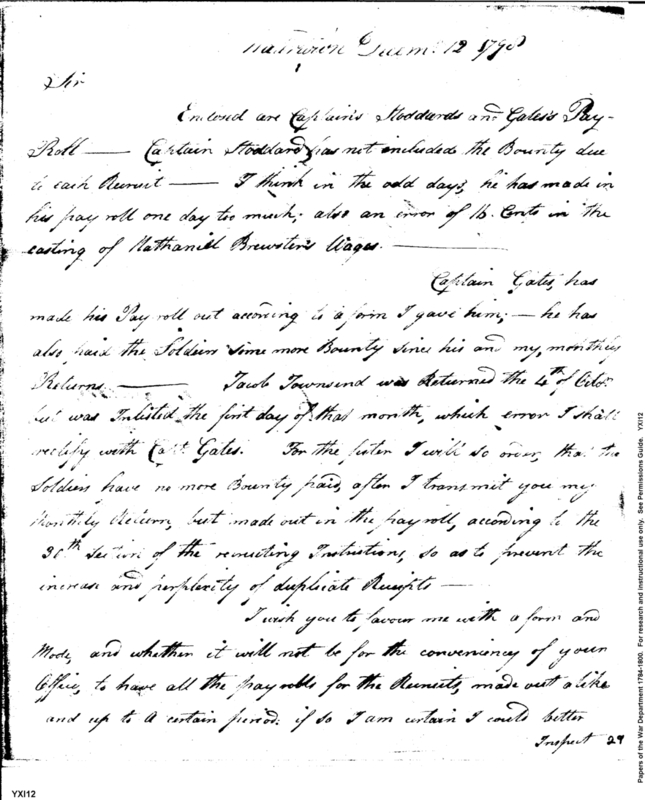 Decem. 12 1798
Sir
Enclosed are Captain's Stoddards and Gates's Pay-
Roll — Captain Stoddard has not included the Bounty due
to each Recruit — I think in the odd days, he has made in
his pay roll one day too much; also an error of 16. Cents in the
casting of Nathaniel Brewster's Wages. —
Captain Gates, has
made his Pay roll out according to a form I gave him; — he has
also paid the Soldiers some more Bounty since his and my, monthly
Returns. — Jacob Townsend was Returned the 4th of
but was Inlisted the first day of that month, which error I shall
rectify with Capt. Gates. For the I will so order, that the
Soldiers have no more Bounty paid, after I transmit you my
Monthly Return, but made out in the pay roll, according to the
30th Section of the recruiting Instructions, so as to prevent the
increase and perplexity of duplicate Receipts —
I wish you to favour me with a form and
Mode, and whether it will not be for the conveniency of your
Office, to have all the pay rolls for the Recruits, made out alike
and up to a certain period: if so I am certain I could better
Inspect 29
YXI12
Papers of the War Department 1784-1800. For research and instructional use only. See Permissions Guide. YXI12